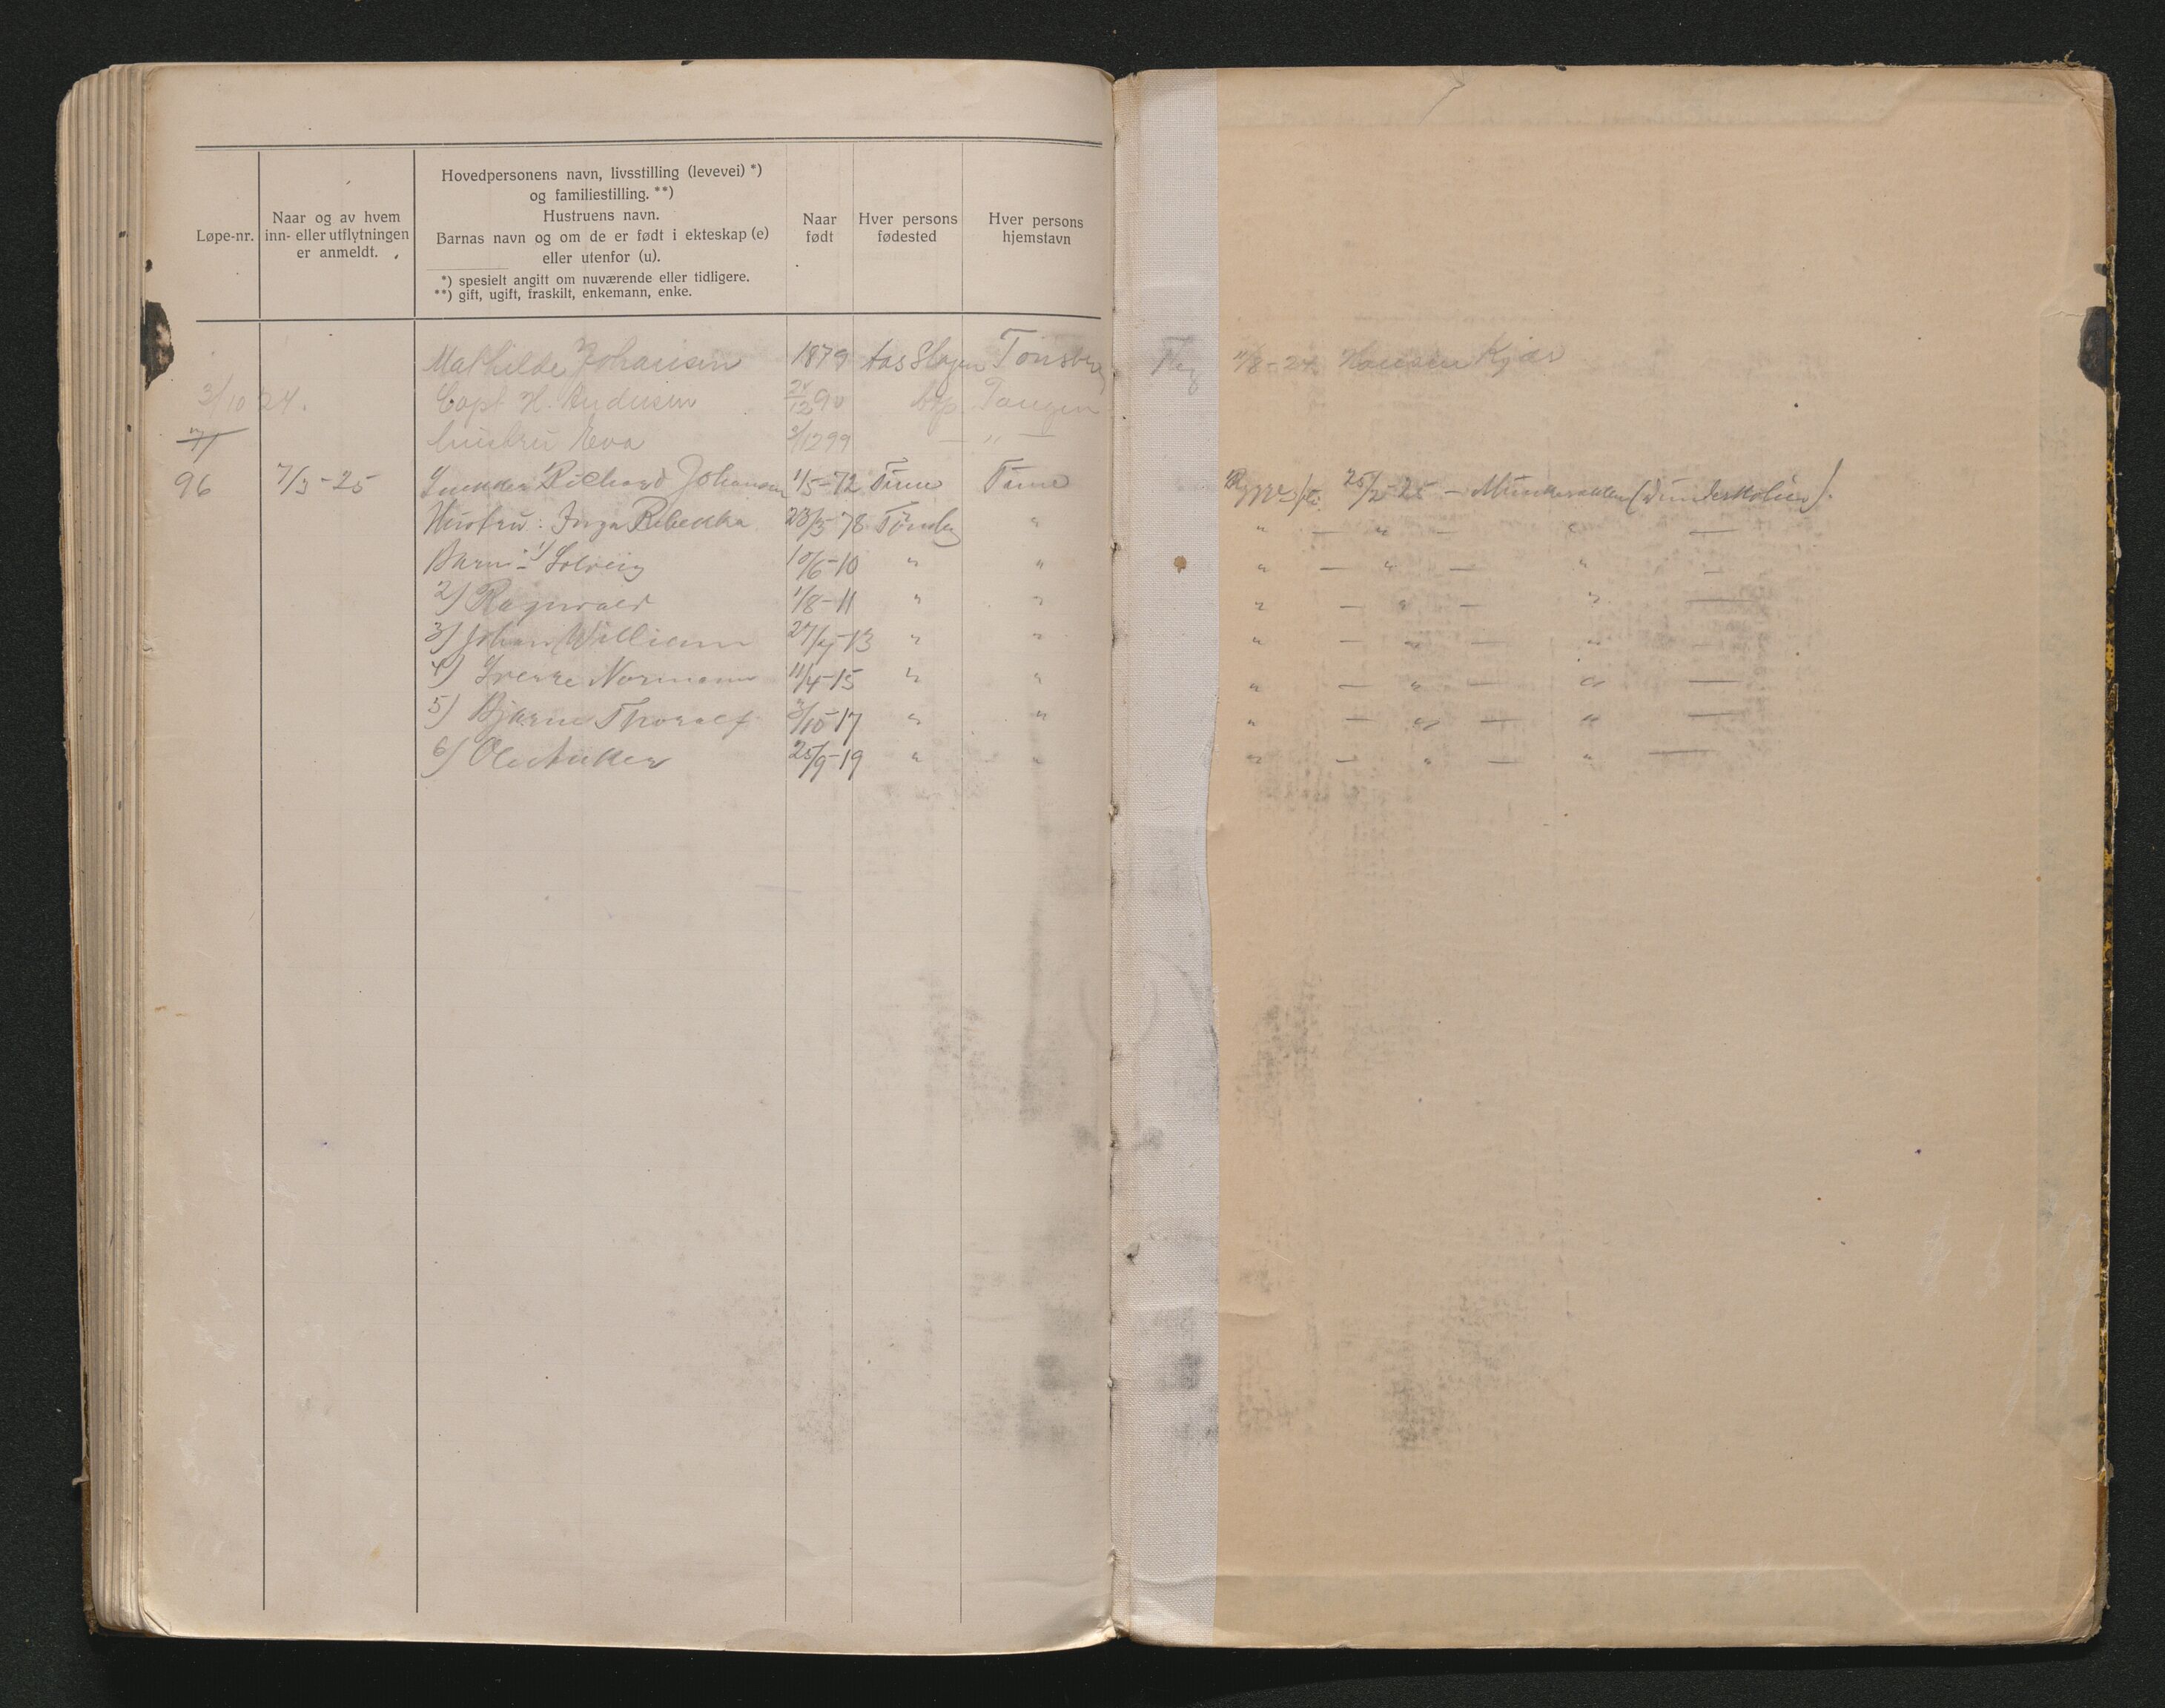 Løpe-nr.
Naar og av hvem
inn- eller utflytningen
er anmeldt.
Hovedpersonens navn, livsstilling (levevei) *)
og familiestilling. **)
Hustruens navn.
Barnas navn og om de er født i ekteskap (e)
eller utenfor (u).
*) spesielt angitt om nuværende eller tidligere.
**) gift, ugift, fraskilt, enkemann, enke.
Naar
født
Hver persons
fødested
Hver persons
hjemstavn
Mathilde Johansen 1879 Aas Slagen Tønsberg 11/8-24 Hansen Kjær
3/10 24. Capt H. Andersen 12 90 Tangen
hustru Eva 2/12 99 — " —
96 7/3-25 Snekker Richard Johansen 1/5-72 Tjøme Tjøme 25/2-25 —
Hustru: Inga Rebekka 23/3-78 Tønsbg " " — " — " —
Barn: 1) Solveig 10/6-10 " " " — " — " —
2) Ragnvald 1/8-11 " " " — " — " —
3) Johan William 27/4-13 " " " — " — " —
4) Sverre Normann 11/4-15 " " " — " — " —
5) Bjarne Thoralf 3/10-17 " " " — " — " —
6) Ole Anker 25/9-19 " " " — " — " —